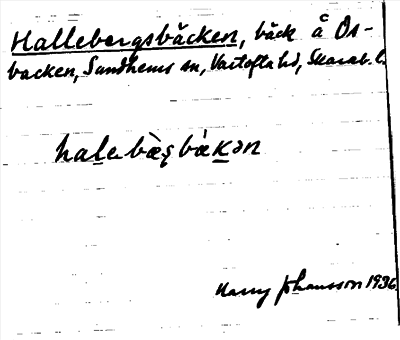 Hallebergsbäcken, bäck å Os-
backen, Sandhems sn, Vartofta hd, Skarab. l.
halebæ̀ʂbäkən
Harry Johansson 1936